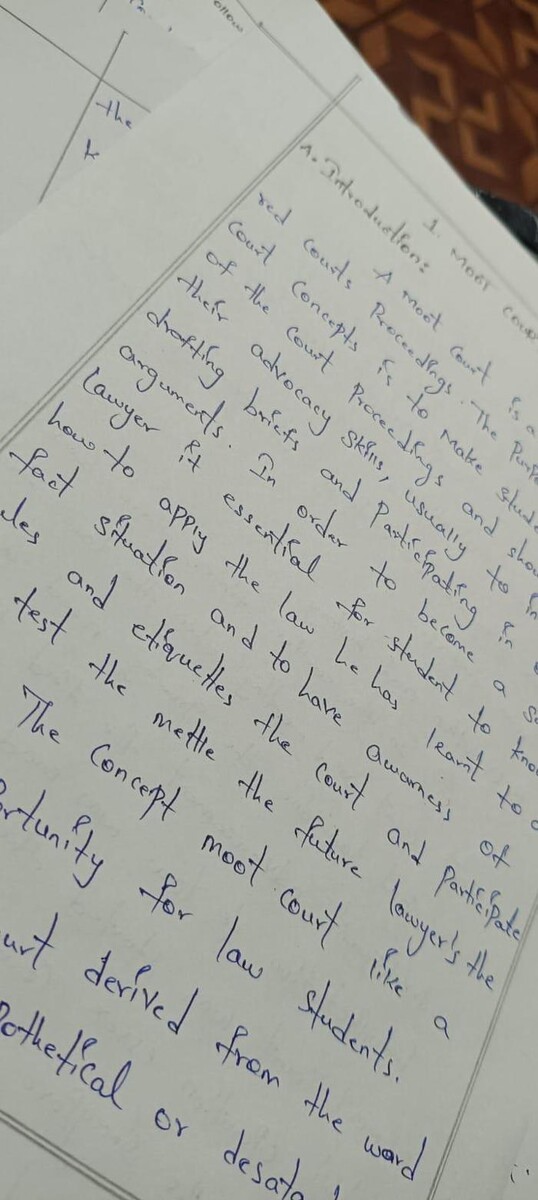 the
1. MOOT COUR
A. Introduction:
A moot Court is a
red Courts Proceedings. The Purp
Court Concepts is to make stude
of the court Proceedings and shou
their advocacy skills, usually to in
drafting briefs and Participating in
arguments. In order to become a
Lawyer it essential for student to kno
how to apply the law he has learnt to
fact situation and to have awarness of
ules and etiquettes the court and Participate
test the mettle the future lawyer's the
The Concept moot court like a
ortunity for law students.
urt derived from the word
Pothetical or